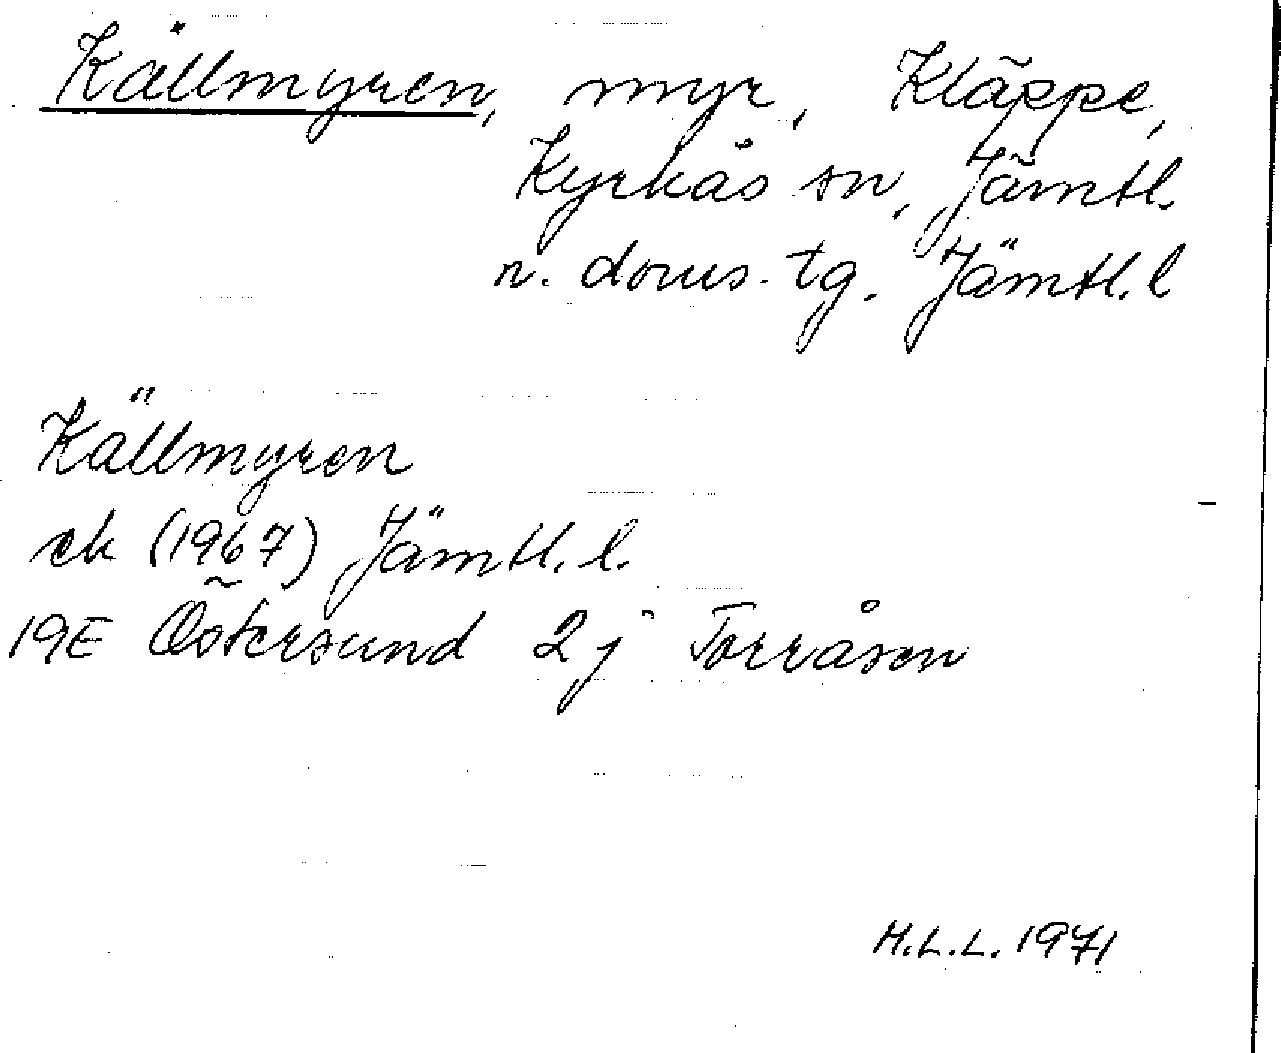 Källmyren, myr, Kläppe,
Kyrkås sn, Jämtl.
n. doms. tg. Jämtl. l
Källmyren
ek (1967) Jämtl. l.
19E Östersund 2 j Torråsen
H.L.L. 1971